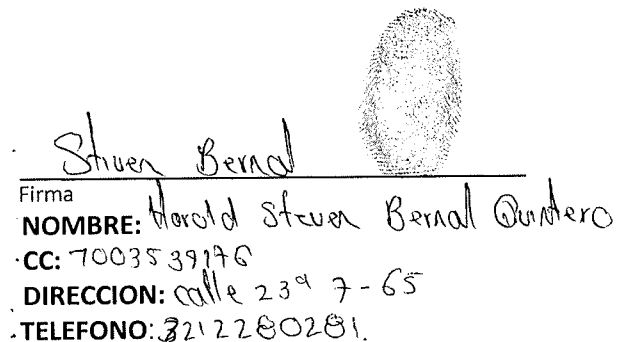 Stiven Bernal
Firma
NOMBRE: Harold Steven Bernal Quintero
CC: 7003539176
DIRECCION: calle 23ª 7-65
TELEFONO: 3212280281.